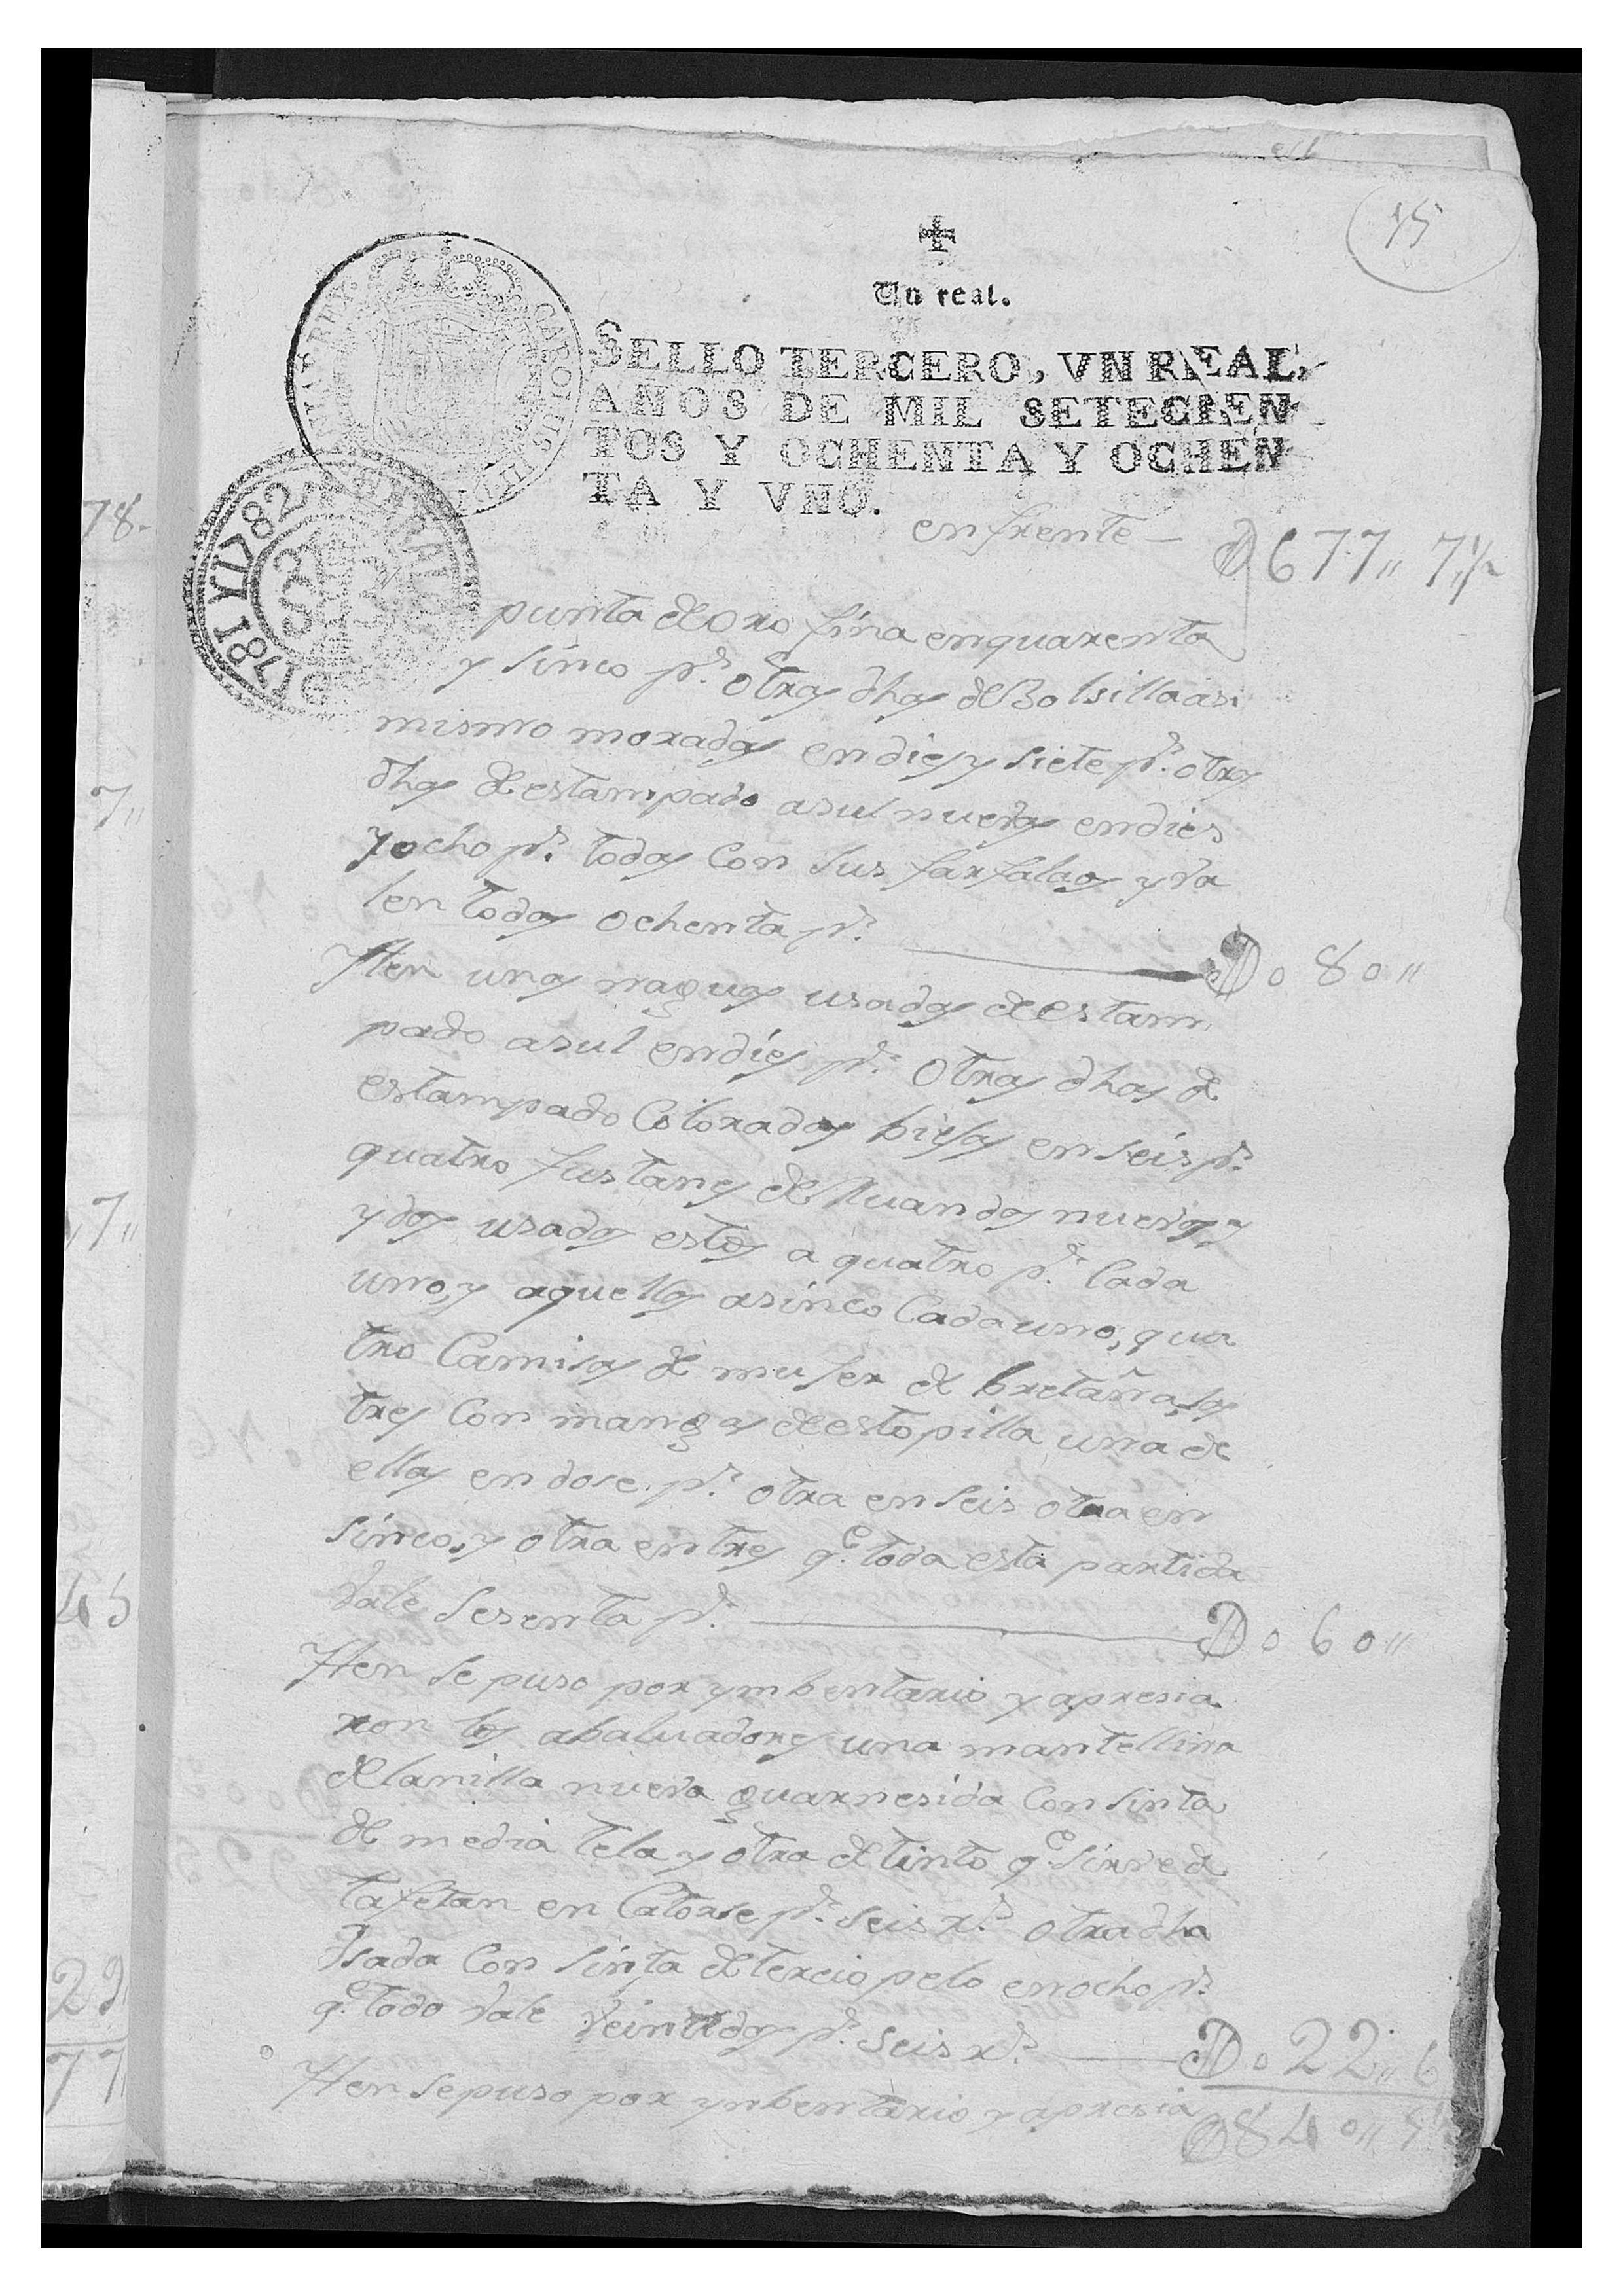 15
Un real.
SELLO TERCERO, VN REAL,
AÑOS DE MIL SETECIEN
TOS Y OCHENTA Y OCHEN
TA Y VNO.
CAROLUS III D
REY
1781 Y 1782
en frente — 677,, 7 1/2
punta de oro fina en quarenta
y sinco ps. otras dhas de Bolsilla asi
mismo moradas en dies y siete ps. otras
dhas de estampado asul nuebas en dies
y ocho ps. todas Con sus farfalas y va
len todas ochenta ps. — 0 80,,
Yten unas naguas usadas de estam
pado asul en dies ps. Otras dhas de
estampado Coloradas biejas en seis ps.
quatro fustanes de Ruan dos nuevos
y dos usados estos a quatro ps. Cada
uno, y aquellos a sinco Cada uno, qua
tro Camisas de muser de bretaña, las
tres Con mangas de estopilla una de
ellas en dose ps. otra en seis otra en
sinco, y otra en tres qe. toda esta partida
vale sesenta ps. — 0 60,,
Yten se puso por ymbentario y apresia
ron los abaluadores una mantellina
de lanilla nueva guarnesida Con sinta
de media tela y otra de tinto qe. sirve de
tafetan en Catorse ps. seis rs. otra dha
Vsada Con sinta de tercio pelo en ocho ps.
qe. todo vale veintidos ps. seis rs. — 0 22,, 6
Yten se puso por ynbentario y apresia
840,, 5
78
7,,
7,,
45
29
77